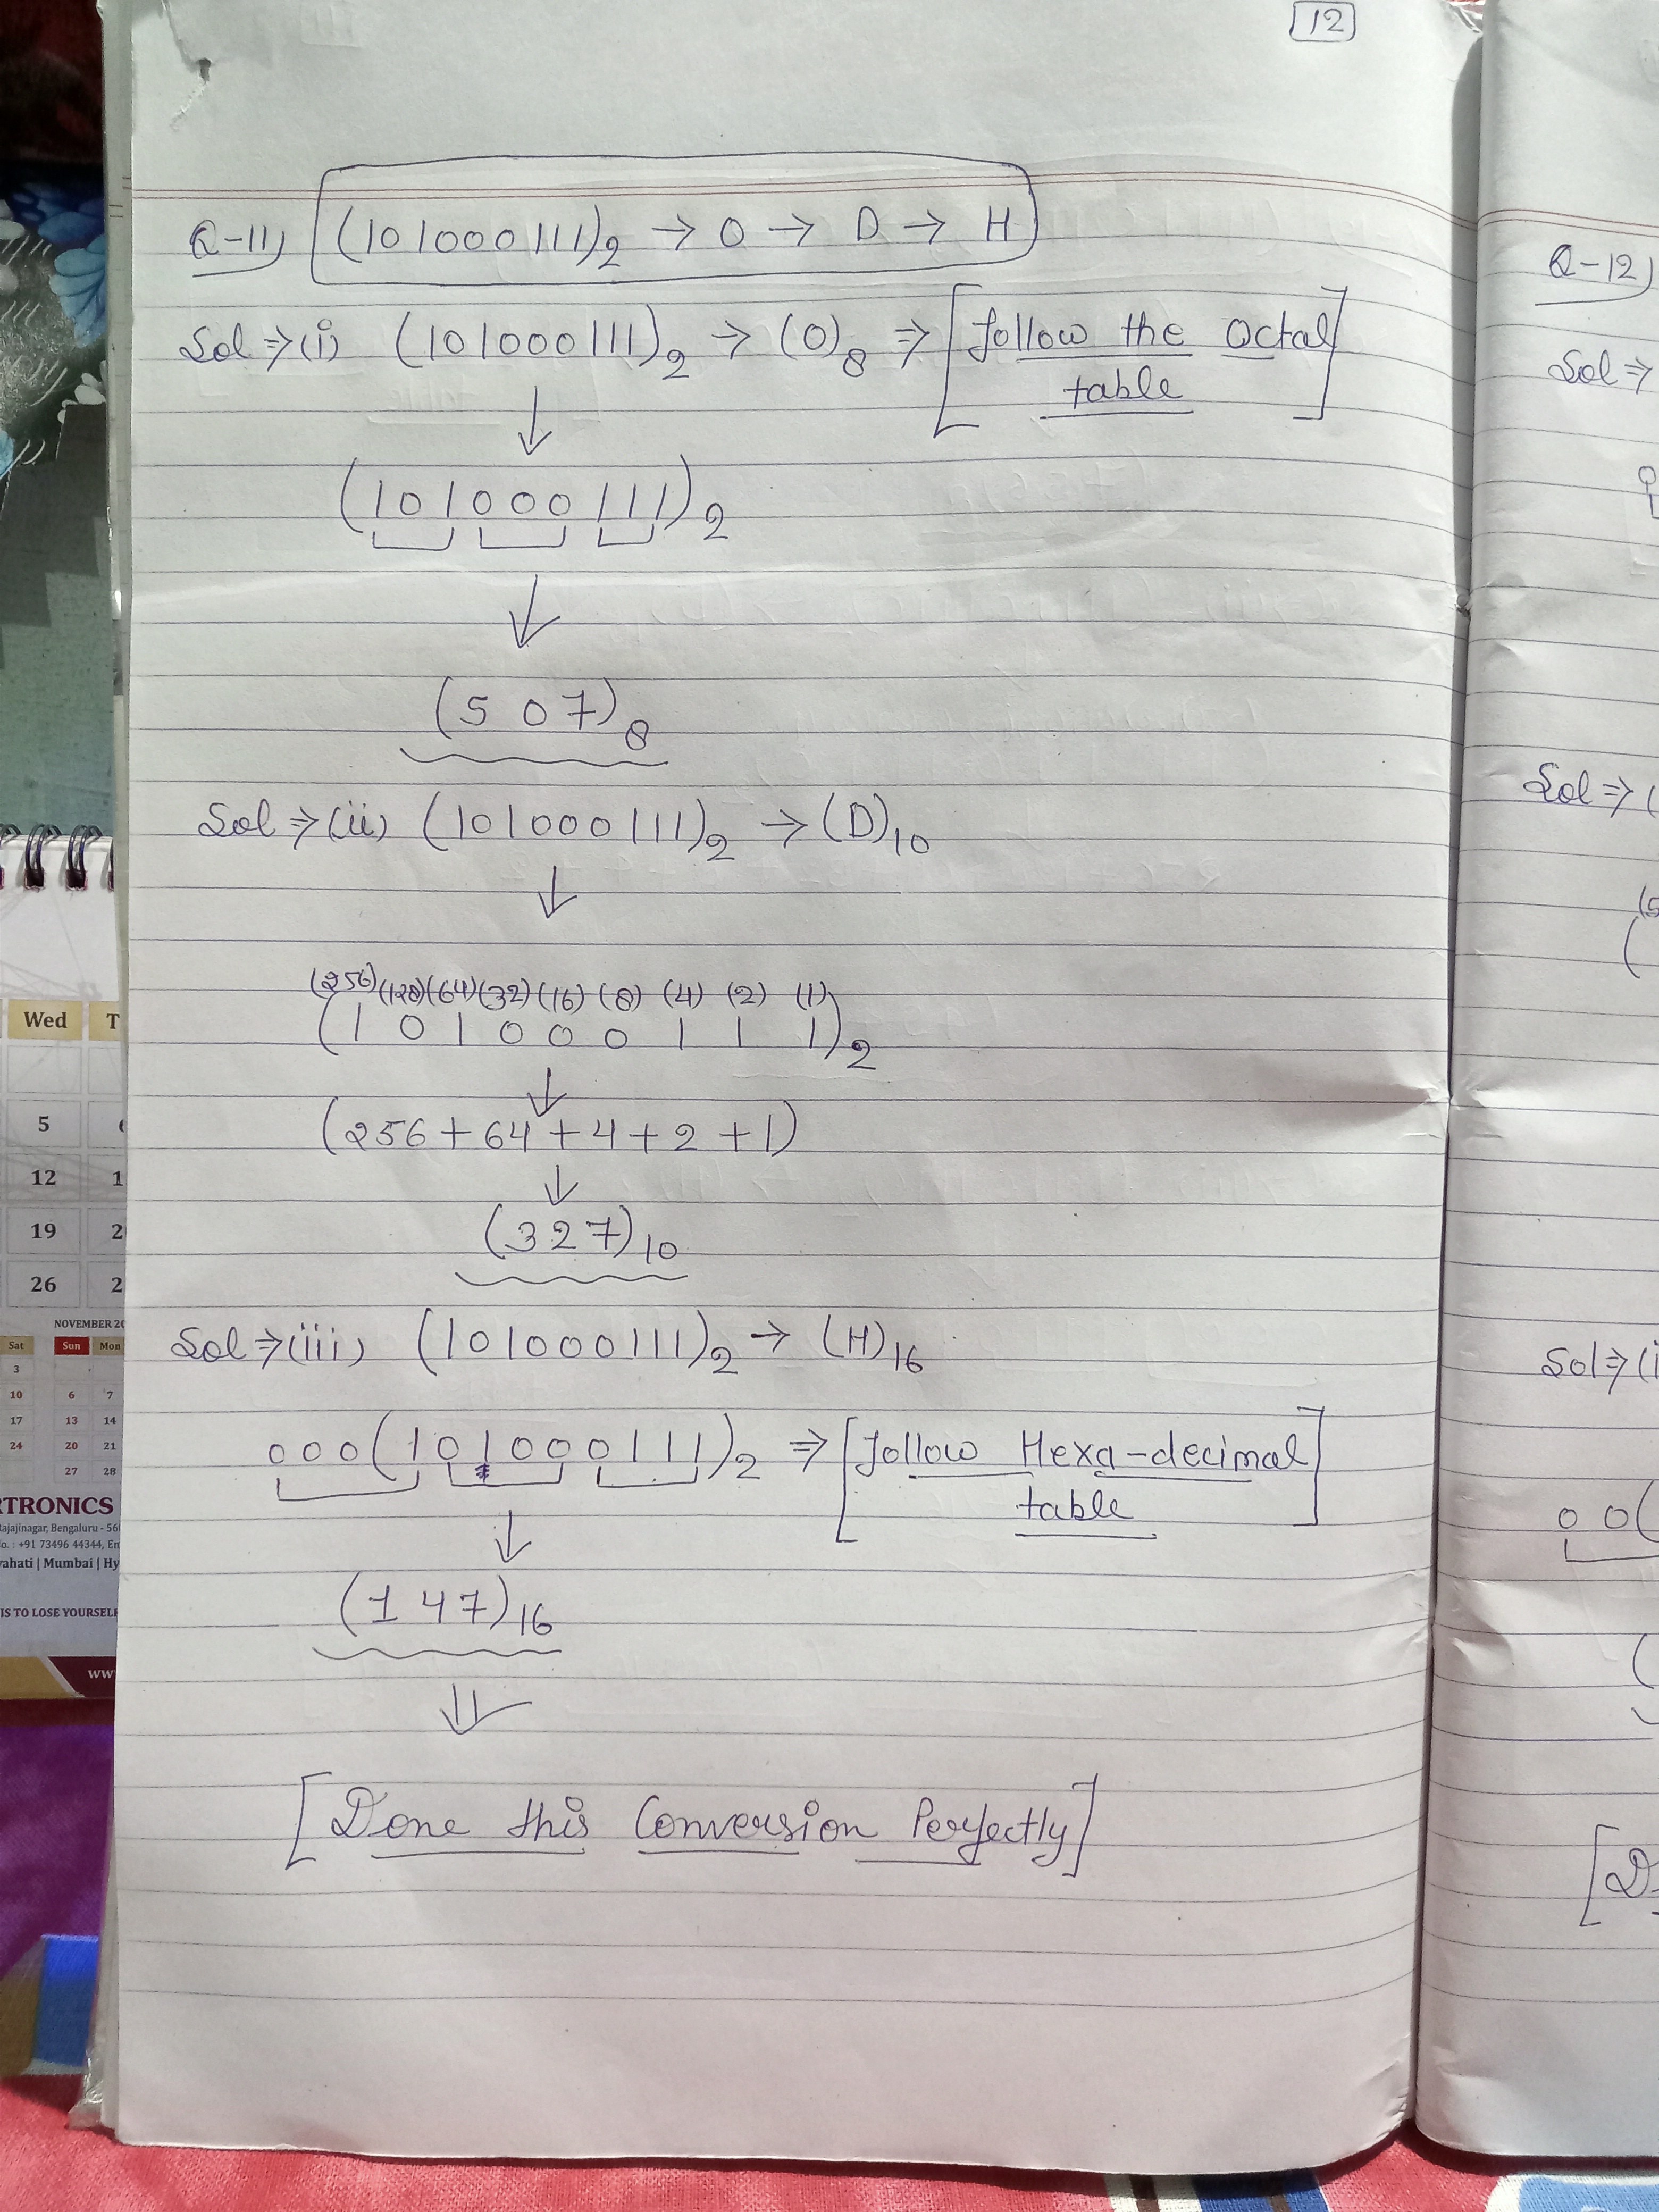 12
Q-11) (101000111)₂ → O → D → H
Sol ⇒ (i) (101000111)₂ → (O)₈ ⇒ [follow the Octal
table]
↓
(101000111)₂
↓
(507)₈
Sol ⇒ (ii) (101000111)₂ → (D)₁₀
↓
(256) (128) (64) (32) (16) (8) (4) (2) (1)
(1 0 1 0 0 0 1 1 1)₂
↓
(256+64+4+2+1)
↓
(327)₁₀
Sol ⇒ (iii) (101000111)₂ → (H)₁₆
000(101000111)₂ ⇒ [follow Hexa-decimal
table]
↓
(147)₁₆
⇓
[Done this Conversion Perfectly]
Q-12)
Sol ⇒
Sol ⇒ (
Sol ⇒ (i
0 0 (
Wed T
5
12 1
19 2
26 2
NOVEMBER 20
Sat Sun Mon
3
10 6 7
17 13 14
24 20 21
27 28
RTRONICS
Rajajinagar, Bengaluru - 56
o. : +91 73496 44344, Em
wahati | Mumbai | Hy
IS TO LOSE YOURSELF
www